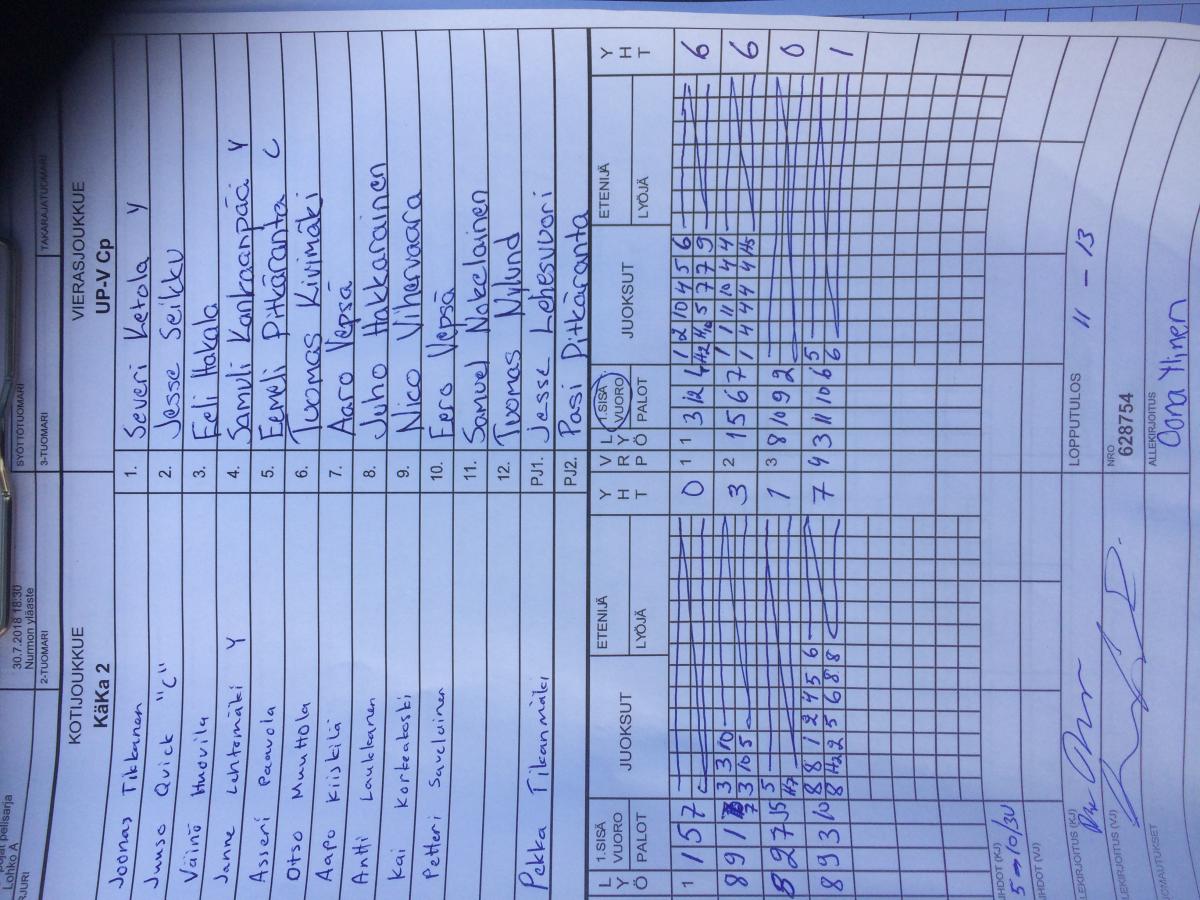 pojat pelisarja
Lohko A
30.7.2018 18:30
Nurmon yläaste
SYÖTTÖTUOMARI
2-TUOMARI
3-TUOMARI
TAKARAJATUOMARI
KOTIJOUKKUE
KäKa 2
VIERASJOUKKUE
UP-V Cp
Joonas Tikkanen 1. Severi Ketola Y
Juuso Quick "C" 2. Jesse Seikku
Väinö Huovila 3. Eeli Hakala
Janne Lehtomäki Y 4. Samuli Kankaanpää Y
Asseri Paavola 5. Eemeli Pitkäranta C
Otso Muuttola 6. Tuomas Kivimäki
Aapo Kiiskilä 7. Aaro Vepsä
Antti Laukkanen 8. Juho Hakkarainen
Kai Korteatoski 9. Nico Vihervaara
Petteri Savelainen 10. Eero Vepsä
11. Samuel Nokelainen
12. Tuomas Nylund
Pekka Tikanmäki PJ1. Jesse Lehesvuori
PJ2. Pasi Pitkäranta
LYÖ 1.SISÄ VUORO PALOT JUOKSUT ETENIJÄ LYÖJÄ YHT VRP LYÖ 1.SISÄ VUORO PALOT JUOKSUT ETENIJÄ LYÖJÄ YHT
1 1 5 7 0 1 1 3 12 4 1 2 10 4 5 6 6
5 7 7 9
8 9 1 3 3 10 3 2 1 5 6 7 1 1 11 10 4 4 6
3 10 5 1 4 4 4 4 H5
8 2 7 5 1 3 8 10 9 2 0
H7
8 9 3 10 8 8 1 2 4 5 6 7 4 3 11 10 6 5 1
8 H2 2 5 6 8 8 6
5→10/3U
LOPPUTULOS 11 - 13
NRO
628754
ALLEKIRJOITUS
Oona Ylinen
ALLEKIRJOITUS (KJ)
ALLEKIRJOITUS (VJ)
HUOMAUTUKSET